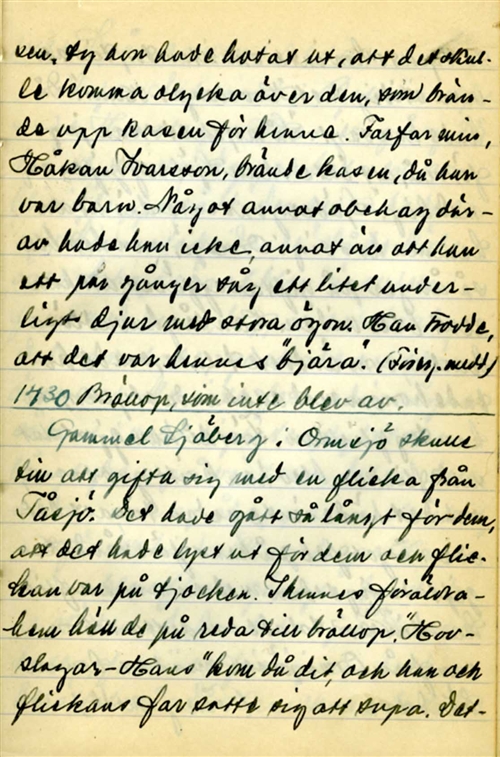 sen, ty hon hade hotat ut, att det skul-
le komma olycka över den, som brän-
de upp kasen för henne. Farfar min,
Håkan Ivarsson, brände kasen, då han
var barn. Något annat obehag där-
av hade han icke, annat än att han
ett par gånger såg ett litet under-
ligt djur med stora ögon. Han trodde,
att det var hennes "bjära". (Föreg. medd.)
1730 Bröllop, som inte blev av.
Gammel Sjöberg i Ormsjö skulle
till att gifta sig med en flicka från
Tåsjö. Det hade gått så långt för dem,
att det hade lyst ut för dem och flic-
kan var på tjocken. I hennes föräldra-
hem höll de på reda till bröllop. "Hov-
slagar-Hans" kom då dit, och han och
flickans far satte sig att supa. Det-